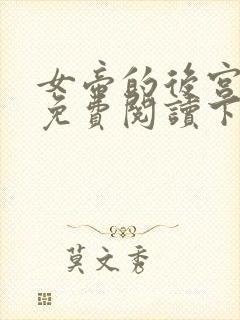 女帝的後宮
免費閱讀下
莫文秀